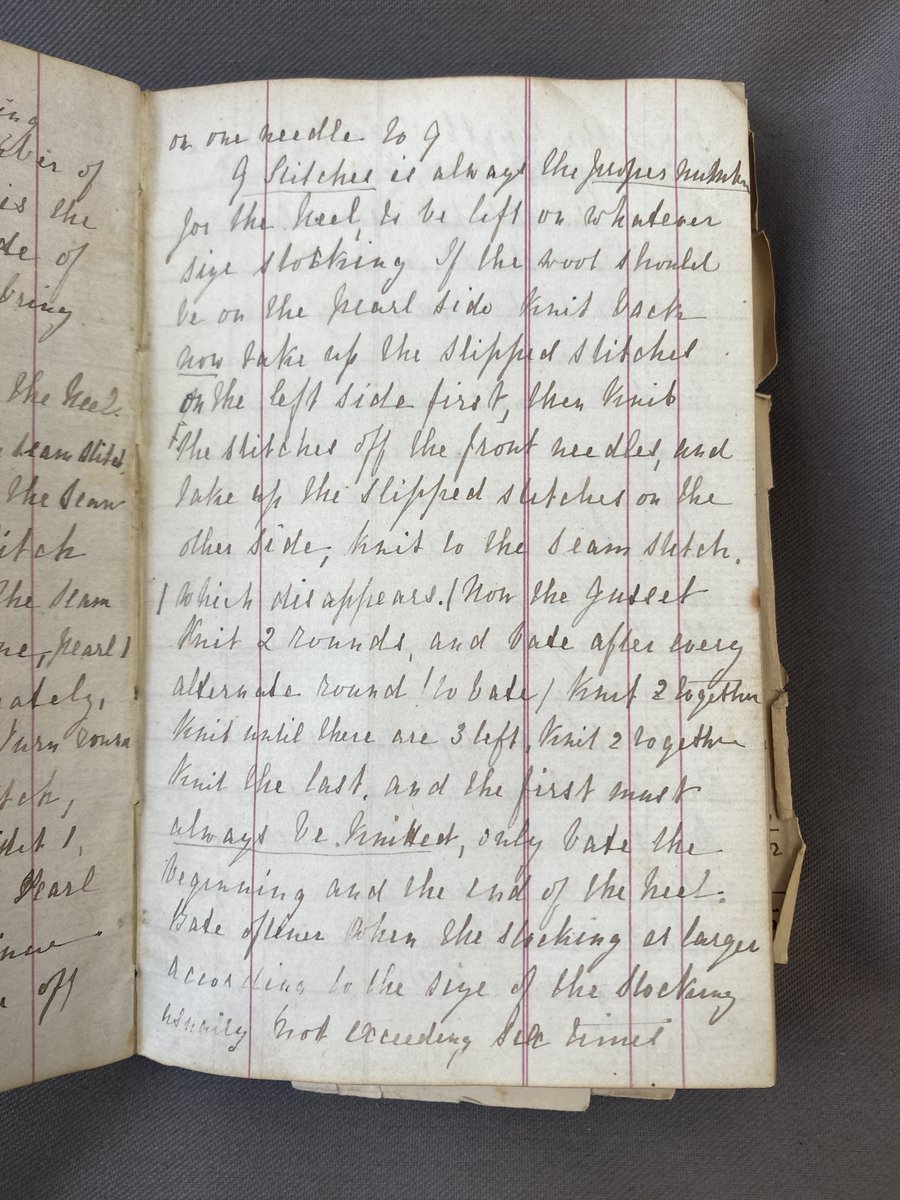 ing
mber of
is the
de of
bring
the heel.
seam stitch,
the seam
itch
the seam
ne, pearl 1
nately,
Turn round
tch,
ght 1,
Pearl
off
on one needle to 9
9 Stitches is always the proper number
for the heel, to be left on whatever
size stocking If the wool should
be on the pearl side knit back
now take up the slipped stitches
on the left side first, then knit
the stitches off the front needles, and
take up the slipped stitches on the
other side, knit to the seam stitch.
( which disappears. ( Now the Gusset
Knit 2 rounds, and bate after every
alternate round (to bate) knit 2 together
Knit until there are 3 left, knit 2 together
knit the last. and the first must
always be knitted, only bate the
beginning and the end of the heel.
Bate oftener when the stocking is larger
according to the size of the stocking
usually not exceeding six times